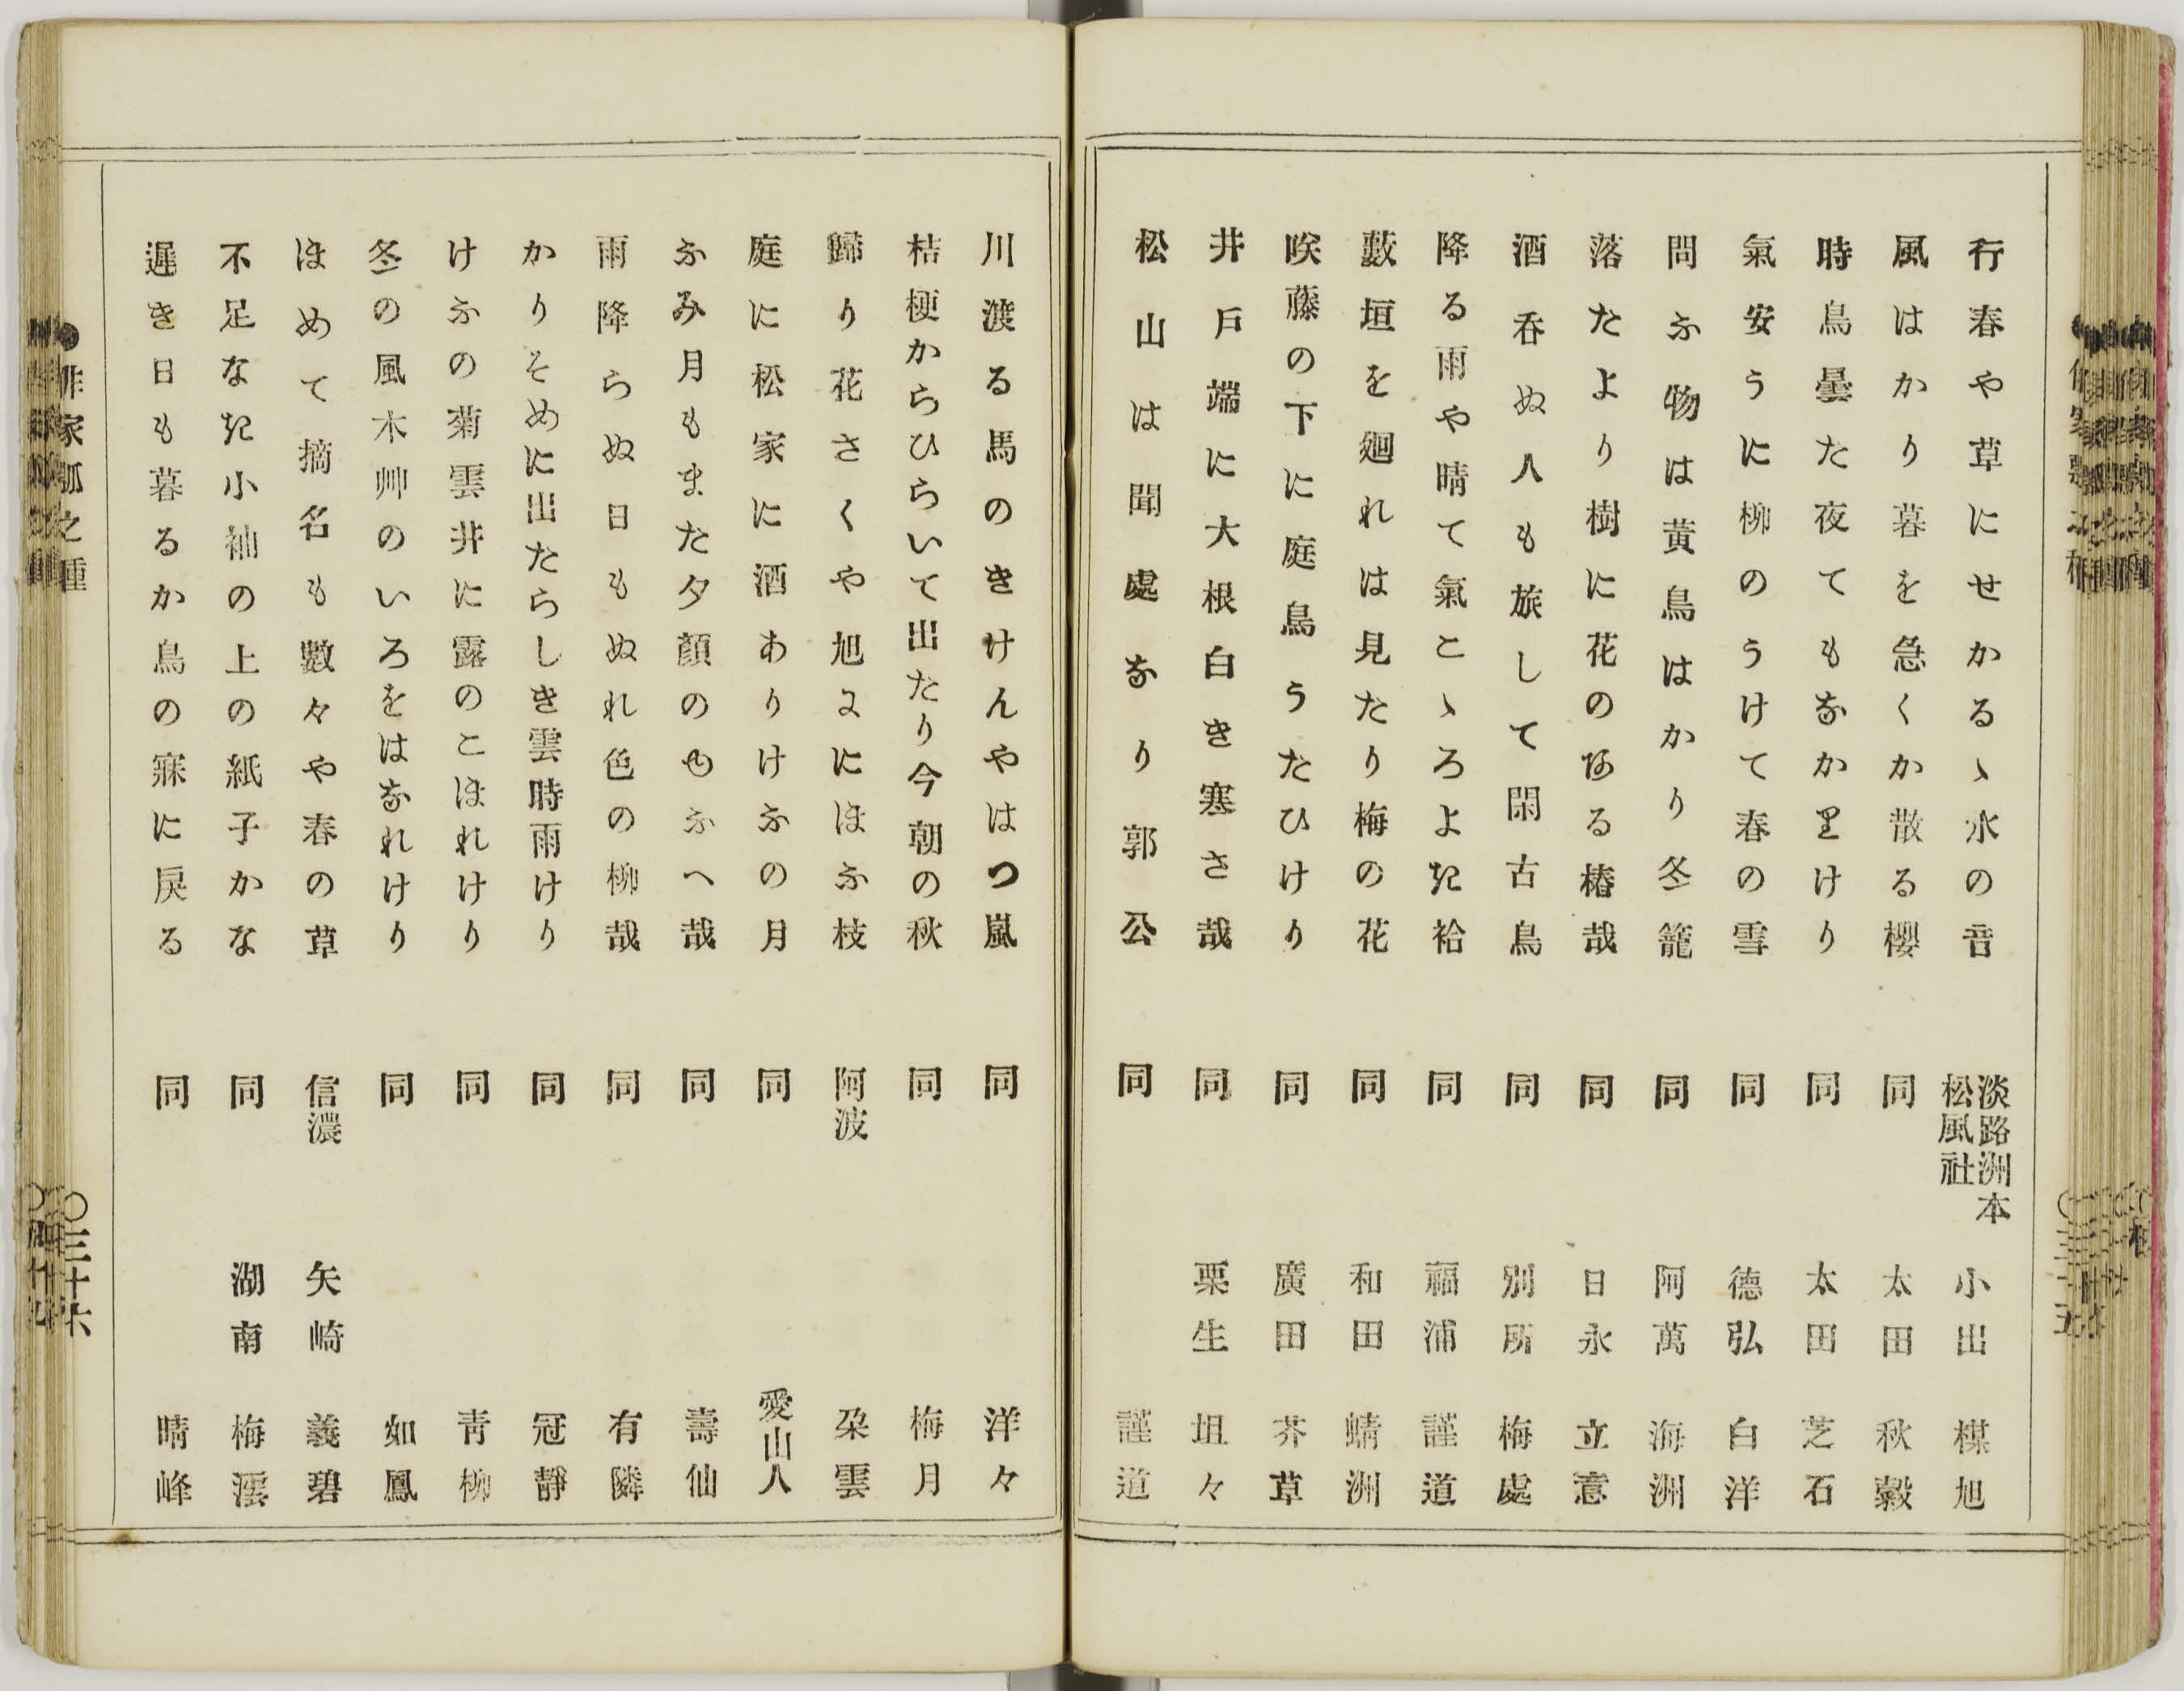 行春や草にせかるゝ水の音 淡路洲本松風社 小出 楳旭
風はかり暮を急くか散る櫻 同 太田 秋穀
時鳥曇た夜てもなか里けり 同 太田 芝石
氣安うに柳のうけて春の雪 同 德弘 白洋
問ふ物は黄鳥はかり冬籠 同 阿萬 海洲
落たより樹に花のある椿哉 同 日永 立意
酒呑ぬ人も旅して閑古鳥 同 別所 梅處
降る雨や晴て氣こゝろよき袷 同 福浦 謹道
藪垣を廻れは見たり梅の花 同 和田 蜻洲
咲藤の下に庭鳥うたひけり 同 廣田 芥草
井戸端に大根白き寒さ哉 同 栗生 坥々
松山は聞處なり郭公 同 謹道
川渡る馬のきけんやはつ嵐 同 洋々
桔梗からひらいて出たり今朝の秋 同 梅月
歸り花さくや旭よにほふ枝 阿波 朶雲
庭に松家に酒ありけふの月 同 愛山人
ふみ月もまた夕顔のゆふへ哉 同 壽仙
雨降らぬ日もぬれ色の柳哉 同 有隣
かりそめに出たらしき雲時雨けり 同 冠靜
けふの菊雲井に露のこほれけり 同 青柳
冬の風木艸のいろをはなれけり 同 如鳳
ほめて摘名も數々や春の草 信濃 矢崎 義碧
不足なき小袖の上の紙子かな 同 湖南 梅澐
遲き日も暮るか鳥の寐に戻る 同 晴峰
〇三十六